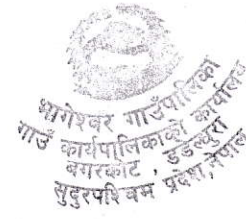 भागेश्वर गाउँपालिका
गाउँ कार्यपालिकाको कार्यालय
बगरकोट डडेल्धुरा
सुदुरपश्चिम प्रदेश, नेपाल